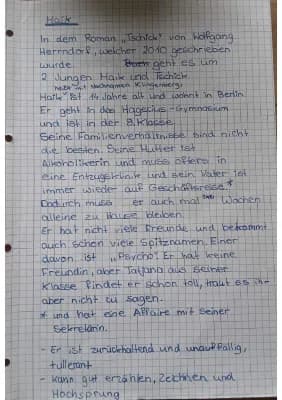 Maik
In dem Roman "Tschick" von Wolfgang
Herrndorf, welcher 2010 geschrieben
wurde. geht es um
2 Jungen Maik und Tschick.
heißt mit Nachnamen Klingenberg,
Maik ist 14 Jahre alt und wohnt in Berlin.
Er geht in das Hagecius-Gymnasium
und ist in der 8. Klasse.
Seine Familienverhältnisse sind nicht
die besten. Seine Mutter ist
Alkoholikerin und muss öfters in
eine Entzugsklinik und sein Vater ist
immer wieder auf Geschäftsreise.*
Dadurch muss er auch mal Wochen
alleine zu Hause bleiben.
Er hat nicht viele Freunde und bekommt
auch schon viele Spitznamen. Einer
davon ist "Psycho". Er hat keine
Freundin, aber Tatjana aus seiner
Klasse findet er schon toll, traut es ihr
aber nicht zu sagen.
* und hat eine Affaire mit seiner
Sekretärin.
- Er ist zurückhaltend und unauffällig,
tullerant
- kann gut erzählen, Zeichnen und
Hochsprung